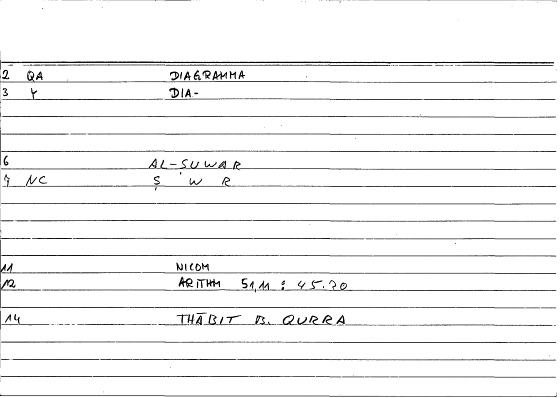 2 QA DIAGRAMMA
3 Y DIA-
6 AL-ṢUWAR
7 NC Ṣ W R
11 NICOM
12 ARITHM 51,11 : 45.20
14 THĀBIT B. QURRA